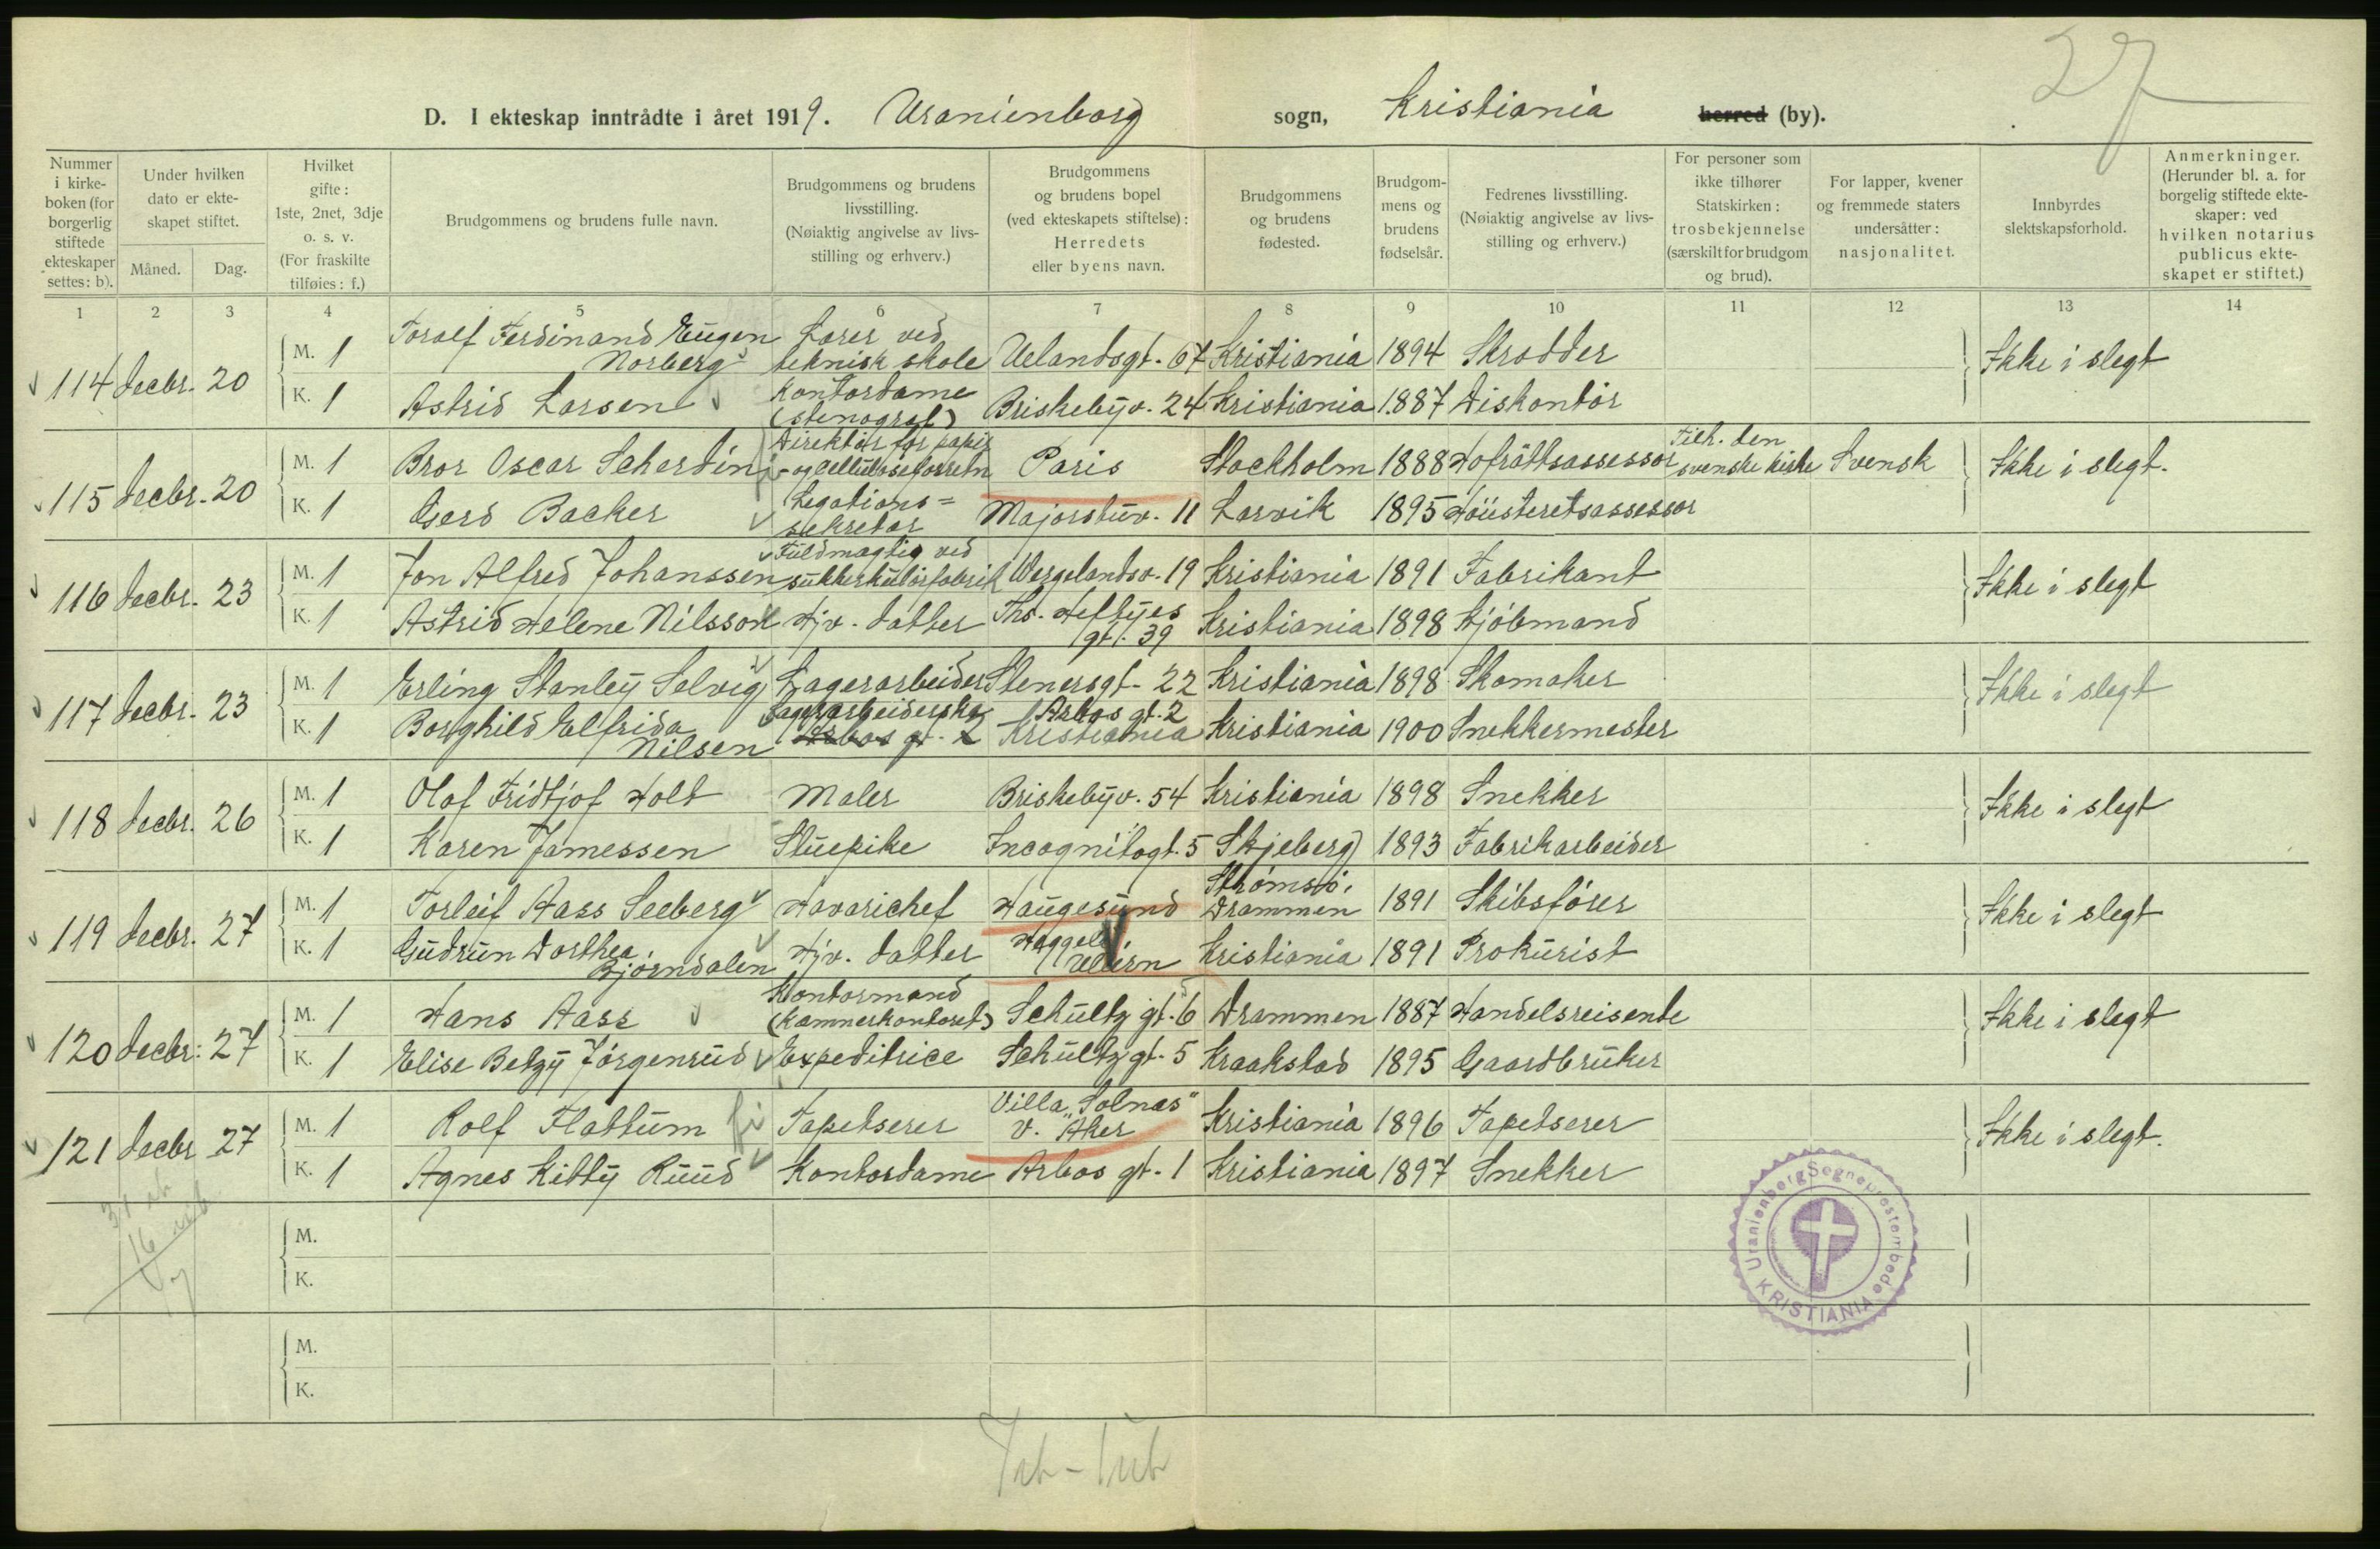 27
D. I ekteskap inntrådte i året 1919. Uranienborg sogn, Kristiania herred (by).
Nummer i kirke-boken (for borgerlig stiftede ekteskaper settes: b).
Under hvilken dato er ekte-skapet stiftet.
Måned. Dag.
Hvilket gifte: 1ste, 2net, 3dje o. s. v. (For fraskilte tilføies: f.)
Brudgommens og brudens fulle navn.
Brudgommens og brudens livsstilling. (Nøiaktig angivelse av livs-stilling og erhverv.)
Brudgommens og brudens bopel (ved ekteskapets stiftelse): Herredets eller byens navn.
Brudgommens og brudens fødested.
Brudgom-mens og brudens fødselsår.
Fedrenes livsstilling. (Nøiaktig angivelse av livs-stilling og erhverv.)
For personer som ikke tilhører Statskirken: trosbekjennelse (særskilt for brudgom og brud).
For lapper, kvener og fremmede staters undersåtter: nasjonalitet.
Innbyrdes slektskapsforhold.
Anmerkninger. (Herunder bl. a. for borgelig stiftede ekte-skaper: ved hvilken notarius publicus ekte-skapet er stiftet.)
1 2 3 4 5 6 7 8 9 10 11 12 13 14
114 Decbr. 20 M. 1 Toralf Ferdinand Eugen Norberg Lærer ved teknisk skole Uelandsgt. 67 Kristiania 1894 Skrædder Ikke i slegt
K. 1 Astrid Larsen Kontordame (stenograf) Briskebyv. 24 Kristiania 1887 Diskontør
115 Decbr. 20 M. 1 Bror Oscar Scherdin Direktør for papir- og celluloseforretn Paris Stockholm 1888 Hofråttsassessor Tilh. den svenske kirke Svensk Ikke i slegt.
K. 1 Gerd Backer Legations=sekretær Majorstuv. 11 Larvik 1895 Høiesteretsassessor
116 Decbr. 23 M. 1 Jon Alfred Johanssen Fuldmægtig ved sukkerkulørfabrik Wergelandsv. 19 Kristiania 1891 Fabrikant Ikke i slegt
K. 1 Astrid Helene Nilsson Hjv. datter Ths. Heftyes gt. 39 Kristiania 1898 Kjøbmand
117 Decbr. 23 M. 1 Erling Stanley Selvig Lagerarbeider Stenersgt. 22 Kristiania 1898 Skomaker Ikke i slegt
K. 1 Borghild Elfrida Nilsen Lagerarbeiderske Arbos gt. 2 Arbos gt. 2 Kristiania Kristiania 1900 Snekkermester
118 Decbr. 26 M. 1 Olaf Fridtjof Holt Maler Briskebyv. 54 Kristiania 1898 Snekker Ikke i slegt
K. 1 Karen Jamessen Stuepike Incognitogt. 5 Skjeberg 1893 Fabrikarbeider
119 Decbr. 27 M. 1 Torleif Aass Seeberg Havarichef Haugesund Strømsø, Drammen 1891 Skibsfører Ikke i slegt
K. 1 Gudrun Dorthea Bjørndalen Hjv. datter Kristiania 1891 Prokurist
120 Decbr: 27 M. 1 Hans Aass Kontormand (Kæmnerkontoret) Schultz gt. 6 Drammen 1887 Handelsreisende Ikke i slegt
K. 1 Elise Betzy Jørgenrud Expeditrice Schultz gt. 5 Kraakstad 1895 Gaardbruker
121 Decbr 27 M. 1 Rolf Flattum Tapetserer Villa "Solnæs" V. Aker Kristiania 1896 Tapetserer Ikke i slegt.
K. 1 Agnes Kitty Ruud Kontordame Arbos gt. 1 Kristiania 1897 Snekker
M.
K.
M.
K.
Uranienborg Sogneprestembede KRISTIANIA